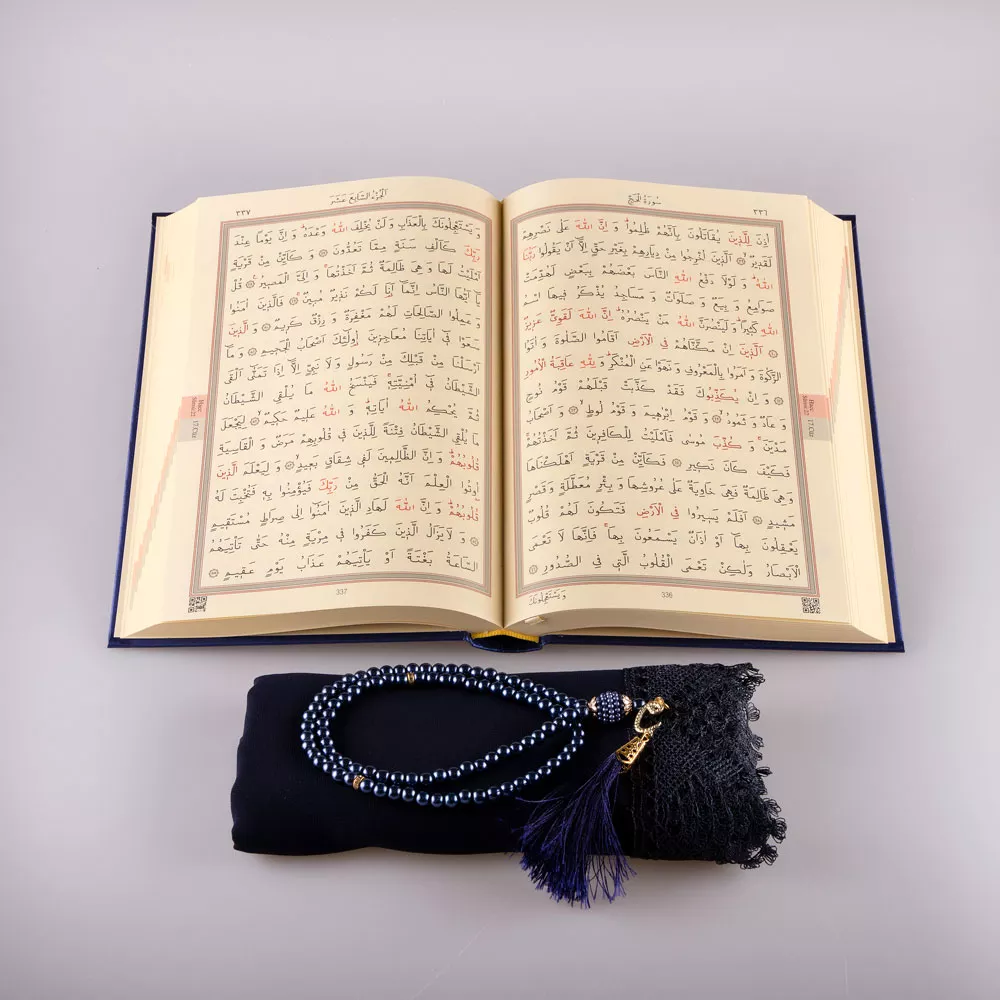 سُورَةُ الْحَجِّ
٣٣٦
اُذِنَ لِلَّذٖينَ يُقَاتَلُونَ بِاَنَّهُمْ ظُلِمُواؕ وَ اِنَّ اللّٰهَ عَلٰى نَصْرِهِمْ
لَقَدٖيرٌۙ ۝ اَلَّذٖينَ اُخْرِجُوا مِنْ دِيَارِهِمْ بِغَيْرِ حَقٍّ اِلَّٓا اَنْ يَقُولُوا رَبُّنَا
اللّٰهُؕ وَ لَوْلَا دَفْعُ اللّٰهِ النَّاسَ بَعْضَهُمْ بِبَعْضٍ لَهُدِّمَتْ
صَوَامِعُ وَ بِيَعٌ وَ صَلَوَاتٌ وَ مَسَاجِدُ يُذْكَرُ فٖيهَا اسْمُ
اللّٰهِ كَثٖيراًؕ وَ لَيَنْصُرَنَّ اللّٰهُ مَنْ يَنْصُرُهُؕ اِنَّ اللّٰهَ لَقَوِىٌّ عَزٖيزٌ
۝ اَلَّذٖينَ اِنْ مَكَّنَّاهُمْ فِى الْاَرْضِ اَقَامُوا الصَّلٰوةَ وَ اٰتَوُا
الزَّكٰوةَ وَ اَمَرُوا بِالْمَعْرُوفِ وَ نَهَوْا عَنِ الْمُنْكَرِؕ وَ لِلّٰهِ عَاقِبَةُ الْاُمُورِ
۝ وَ اِنْ يُكَذِّبُوكَ فَقَدْ كَذَّبَتْ قَبْلَهُمْ قَوْمُ نُوحٍ
وَ عَادٌ وَ ثَمُودُۙ ۝ وَ قَوْمُ اِبْرٰهٖيمَ وَ قَوْمُ لُوطٍۙ ۝ وَ اَصْحَابُ
مَدْيَنَۚ وَ كُذِّبَ مُوسٰى فَاَمْلَيْتُ لِلْكَافِرٖينَ ثُمَّ اَخَذْتُهُمْۚ
فَكَيْفَ كَانَ نَكٖيرِ ۝ فَكَاَيِّنْ مِنْ قَرْيَةٍ اَهْلَكْنَاهَا
وَ هِىَ ظَالِمَةٌ فَهِىَ خَاوِيَةٌ عَلٰى عُرُوشِهَا وَ بِئْرٍ مُعَطَّلَةٍ وَ قَصْرٍ
مَشٖيدٍ ۝ اَفَلَمْ يَسٖيرُوا فِى الْاَرْضِ فَتَكُونَ لَهُمْ قُلُوبٌ
يَعْقِلُونَ بِهَٓا اَوْ اٰذَانٌ يَسْمَعُونَ بِهَاۚ فَاِنَّهَا لَا تَعْمَى
الْاَبْصَارُ وَلٰكِنْ تَعْمَى الْقُلُوبُ الَّتٖى فِى الصُّدُورِ ۝
وَ يَسْتَعْجِلُونَكَ
336
Hac
Sûresi:22
17.Cüz
اَلْجُزْءُ السَّابِعَ عَشَرَ
٣٣٧
وَ يَسْتَعْجِلُونَكَ بِالْعَذَابِ وَ لَنْ يُخْلِفَ اللّٰهُ وَعْدَهُؕ وَ اِنَّ يَوْماً عِنْدَ
رَبِّكَ كَاَلْفِ سَنَةٍ مِمَّا تَعُدُّونَ ۝ وَ كَاَيِّنْ مِنْ قَرْيَةٍ
اَمْلَيْتُ لَهَا وَ هِىَ ظَالِمَةٌ ثُمَّ اَخَذْتُهَاۚ وَ اِلَىَّ الْمَصٖيرُ ۝ قُلْ
يَٓا اَيُّهَا النَّاسُ اِنَّمَٓا اَنَا لَكُمْ نَذٖيرٌ مُبٖينٌۚ ۝ فَالَّذٖينَ اٰمَنُوا
وَ عَمِلُوا الصَّالِحَاتِ لَهُمْ مَغْفِرَةٌ وَ رِزْقٌ كَرٖيمٌ ۝ وَ الَّذٖينَ
سَعَوْا فٖٓى اٰيَاتِنَا مُعَاجِزٖينَ اُولٰٓئِكَ اَصْحَابُ الْجَحٖيمِ ۝ وَ مَٓا
اَرْسَلْنَا مِنْ قَبْلِكَ مِنْ رَسُولٍ وَ لَا نَبِىٍّ اِلَّٓا اِذَا تَمَنّٰٓى اَلْقَى
الشَّيْطَانُ فٖٓى اُمْنِيَّتِهٖۚ فَيَنْسَخُ اللّٰهُ مَا يُلْقِى الشَّيْطَانُ
ثُمَّ يُحْكِمُ اللّٰهُ اٰيَاتِهٖؕ وَ اللّٰهُ عَلٖيمٌ حَكٖيمٌۙ ۝ لِيَجْعَلَ
مَا يُلْقِى الشَّيْطَانُ فِتْنَةً لِلَّذٖينَ فٖى قُلُوبِهِمْ مَرَضٌ وَ الْقَاسِيَةِ
قُلُوبُهُمْؕ وَ اِنَّ الظَّالِمٖينَ لَفٖى شِقَاقٍ بَعٖيدٍۙ ۝ وَ لِيَعْلَمَ الَّذٖينَ
اُوتُوا الْعِلْمَ اَنَّهُ الْحَقُّ مِنْ رَبِّكَ فَيُؤْمِنُوا بِهٖ فَتُخْبِتَ لَهُ
قُلُوبُهُمْؕ وَ اِنَّ اللّٰهَ لَهَادِ الَّذٖينَ اٰمَنُٓوا اِلٰى صِرَاطٍ مُسْتَقٖيمٍ
۝ وَ لَا يَزَالُ الَّذٖينَ كَفَرُوا فٖى مِرْيَةٍ مِنْهُ حَتّٰى تَاْتِيَهُمُ
السَّاعَةُ بَغْتَةً اَوْ يَاْتِيَهُمْ عَذَابُ يَوْمٍ عَقٖيمٍ ۝
337
Hac
Sûresi:22
17.Cüz